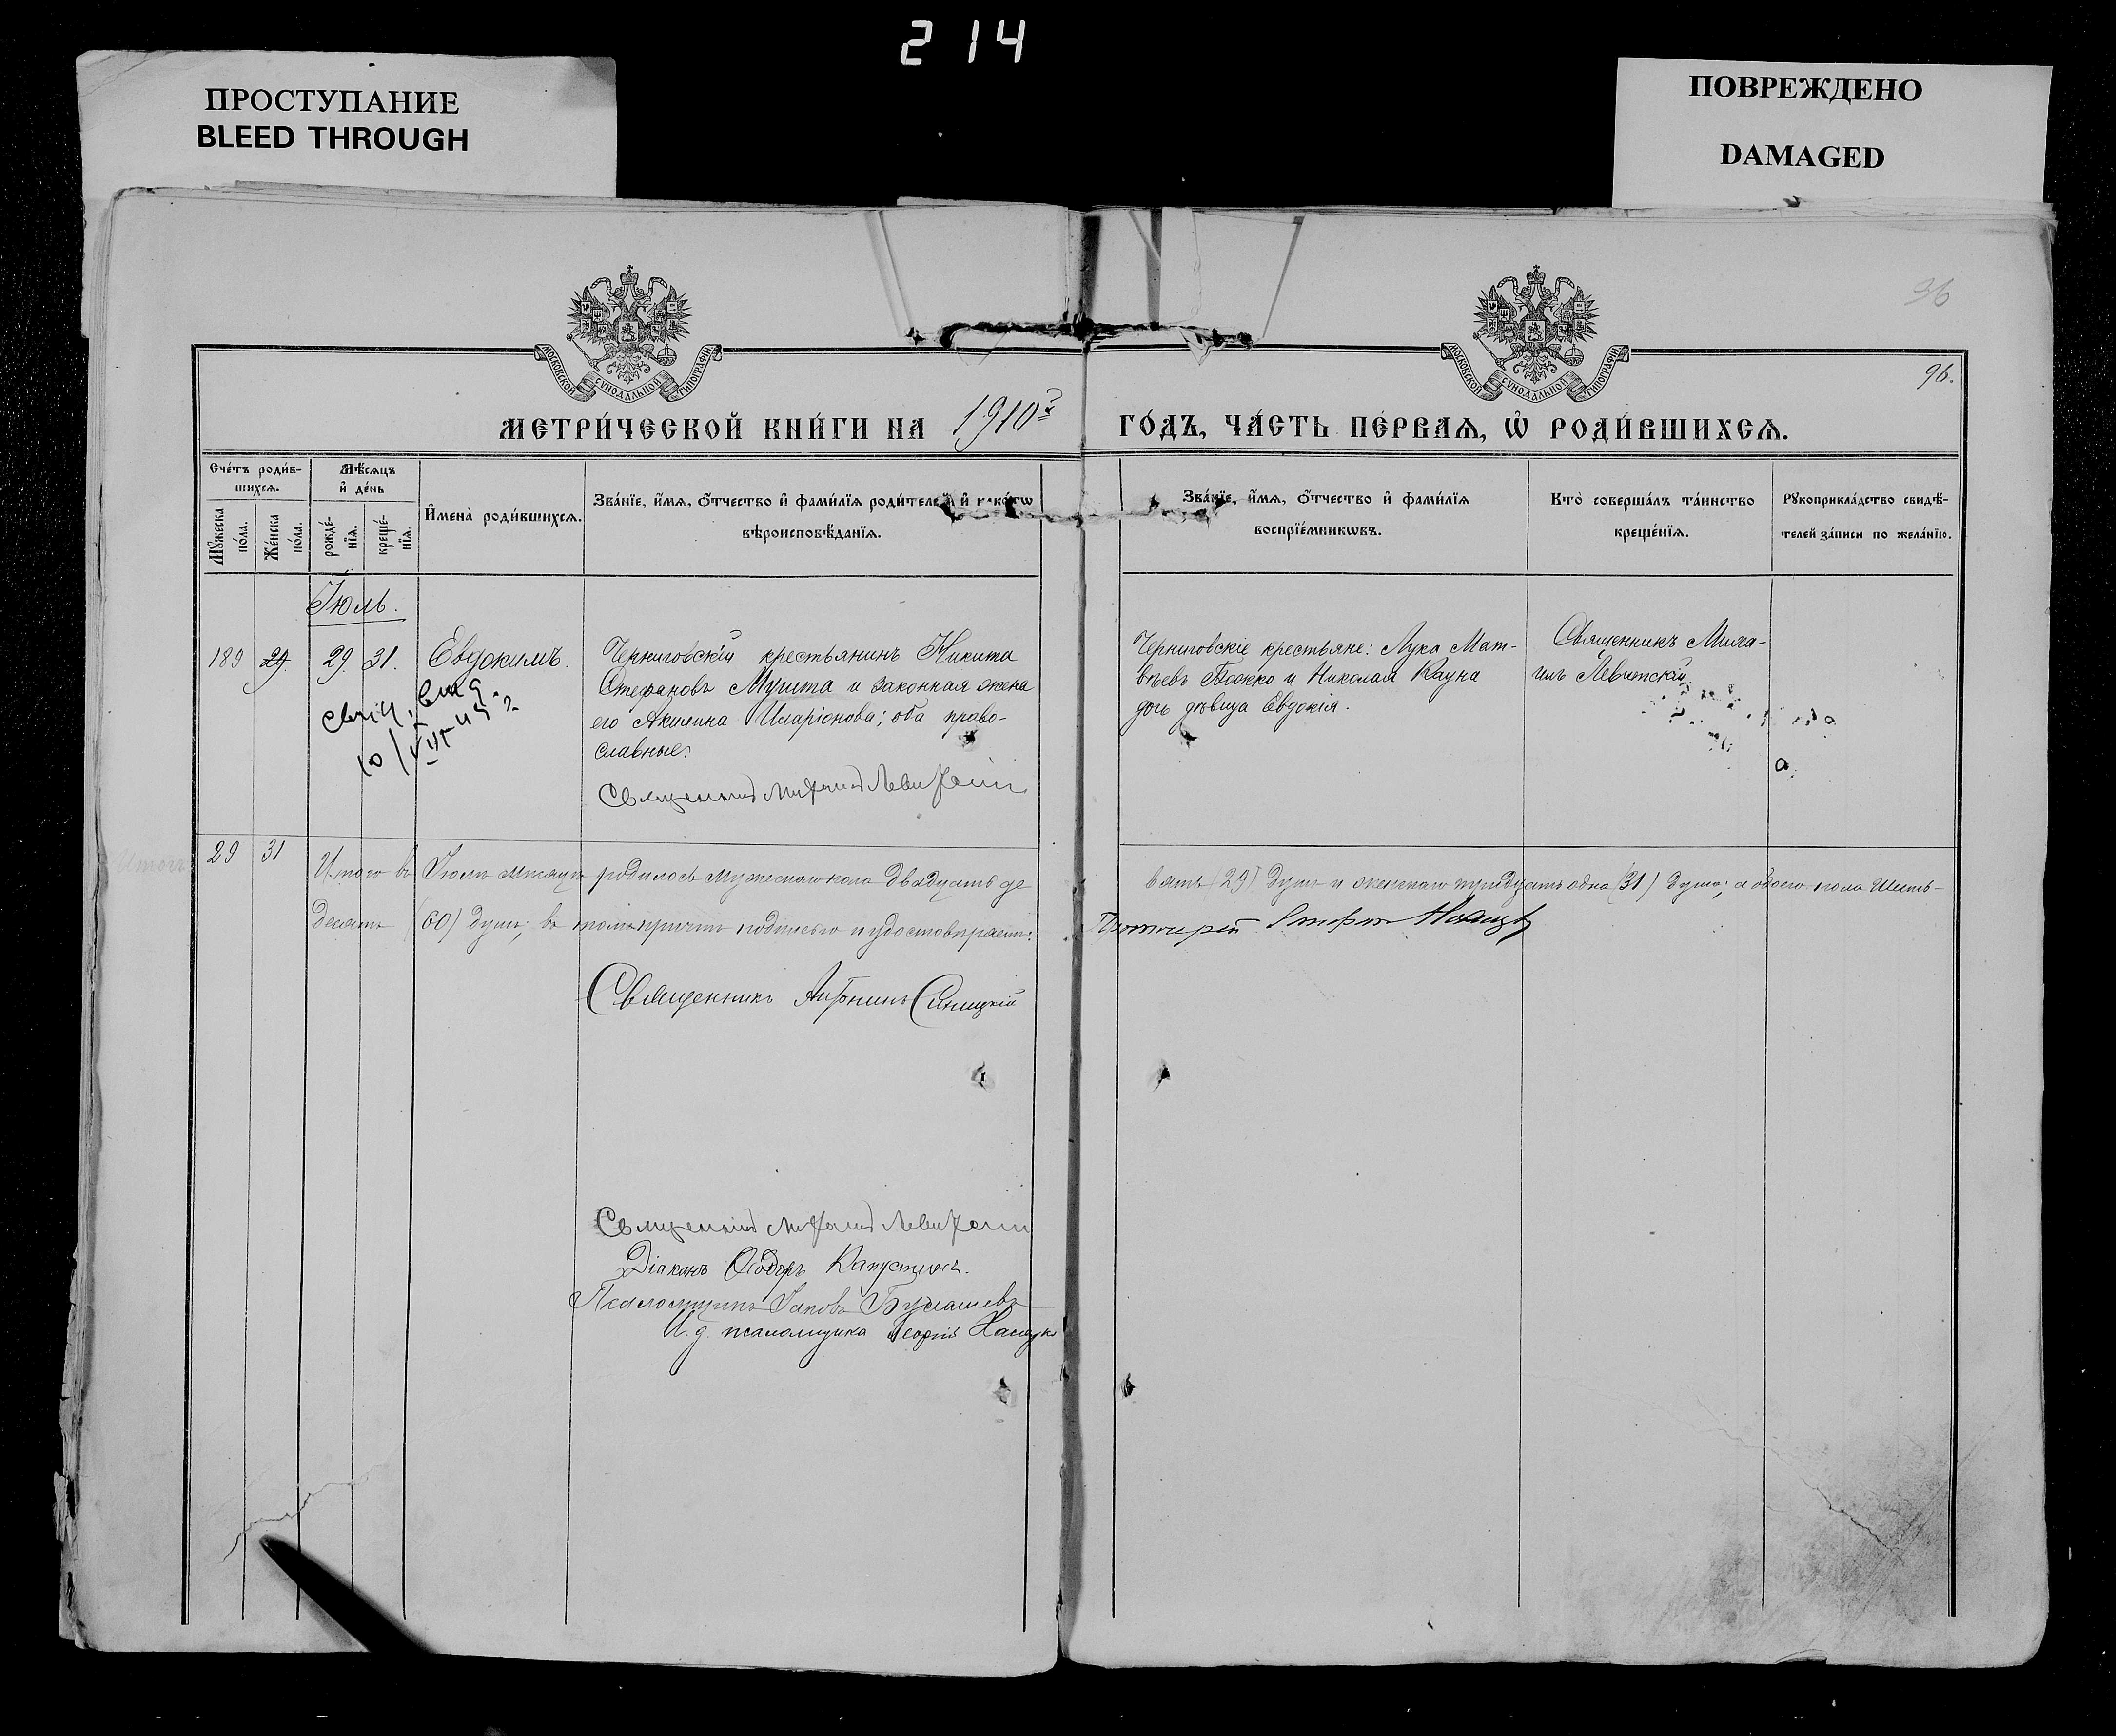 214
ПРОСТУПАНИЕ
BLEED THROUGH
ПОВРЕЖДЕНО
DAMAGED
МОСКОВСКОЙ СУНОДАЛЬНОЙ ТИПОГРАФІИ
МОСКОВСКОЙ СУНОДАЛЬНОЙ ТИПОГРАФІИ
36
96.
МЕТРИ́ЧЕСКОЙ КНИ́ГИ НА 1910 г. ГО́ДЪ, ЧА́СТЬ ПЕ́РВАѦ, Ѡ РОДИ́ВШИХСѦ.
Сче́тъ роди́в-
шихсѧ.
Мꙋ́жеска по́ла.
Же́нска по́ла.
Мѣ́сѧцъ
и҆ де́нь
рожде́-
нїѧ.
креще́-
нїѧ.
И҆мена̀ роди́вшихсѧ.
Зва́нїе, и҆́мѧ, ѻ҆́тчество и҆ фами́лїѧ роди́телей, и҆ како́гѡ
вѣроисповѣ́данїѧ.
Зва́нїе, и҆́мѧ, ѻ҆́тчество и҆ фами́лїѧ
воспрїе́мникѡвъ.
Кто̀ соверша́лъ та́инство
креще́нїѧ.
Рꙋкоприкла́дство свидѣ́-
телей за́писи по жела́нїю.
Іюль.
189 29. 29. 31. Евдокимъ.
Черниговскій крестьянинъ Никита
Стефановъ Мушта и законная жена
его Акилина Иларіонова; оба право-
славные.
Священникъ Михаилъ Левитскій
Черниговскіе крестьяне: Лука Мат-
вѣевъ Божко и Николая Кауна
дочь дѣвица Евдокія.
Священникъ Миха-
илъ Левитскій.
29 31
Итого въ Іюлѣ мѣсяцѣ родилось мужескаго пола двадцать де
вять (29) душъ и женскаго тридцать одна (31) душа; а обоего пола шесть-
десятъ (60) душъ; въ томъ причтъ подписью и удостовѣряетъ:
Протоіерей
Священникъ Антонинъ Синицкій
Священникъ Михаилъ Левитскій
Діаконъ Ѳеодоръ Капустинъ.
Псаломщикъ Іаковъ
И. д. псаломщика Георгій